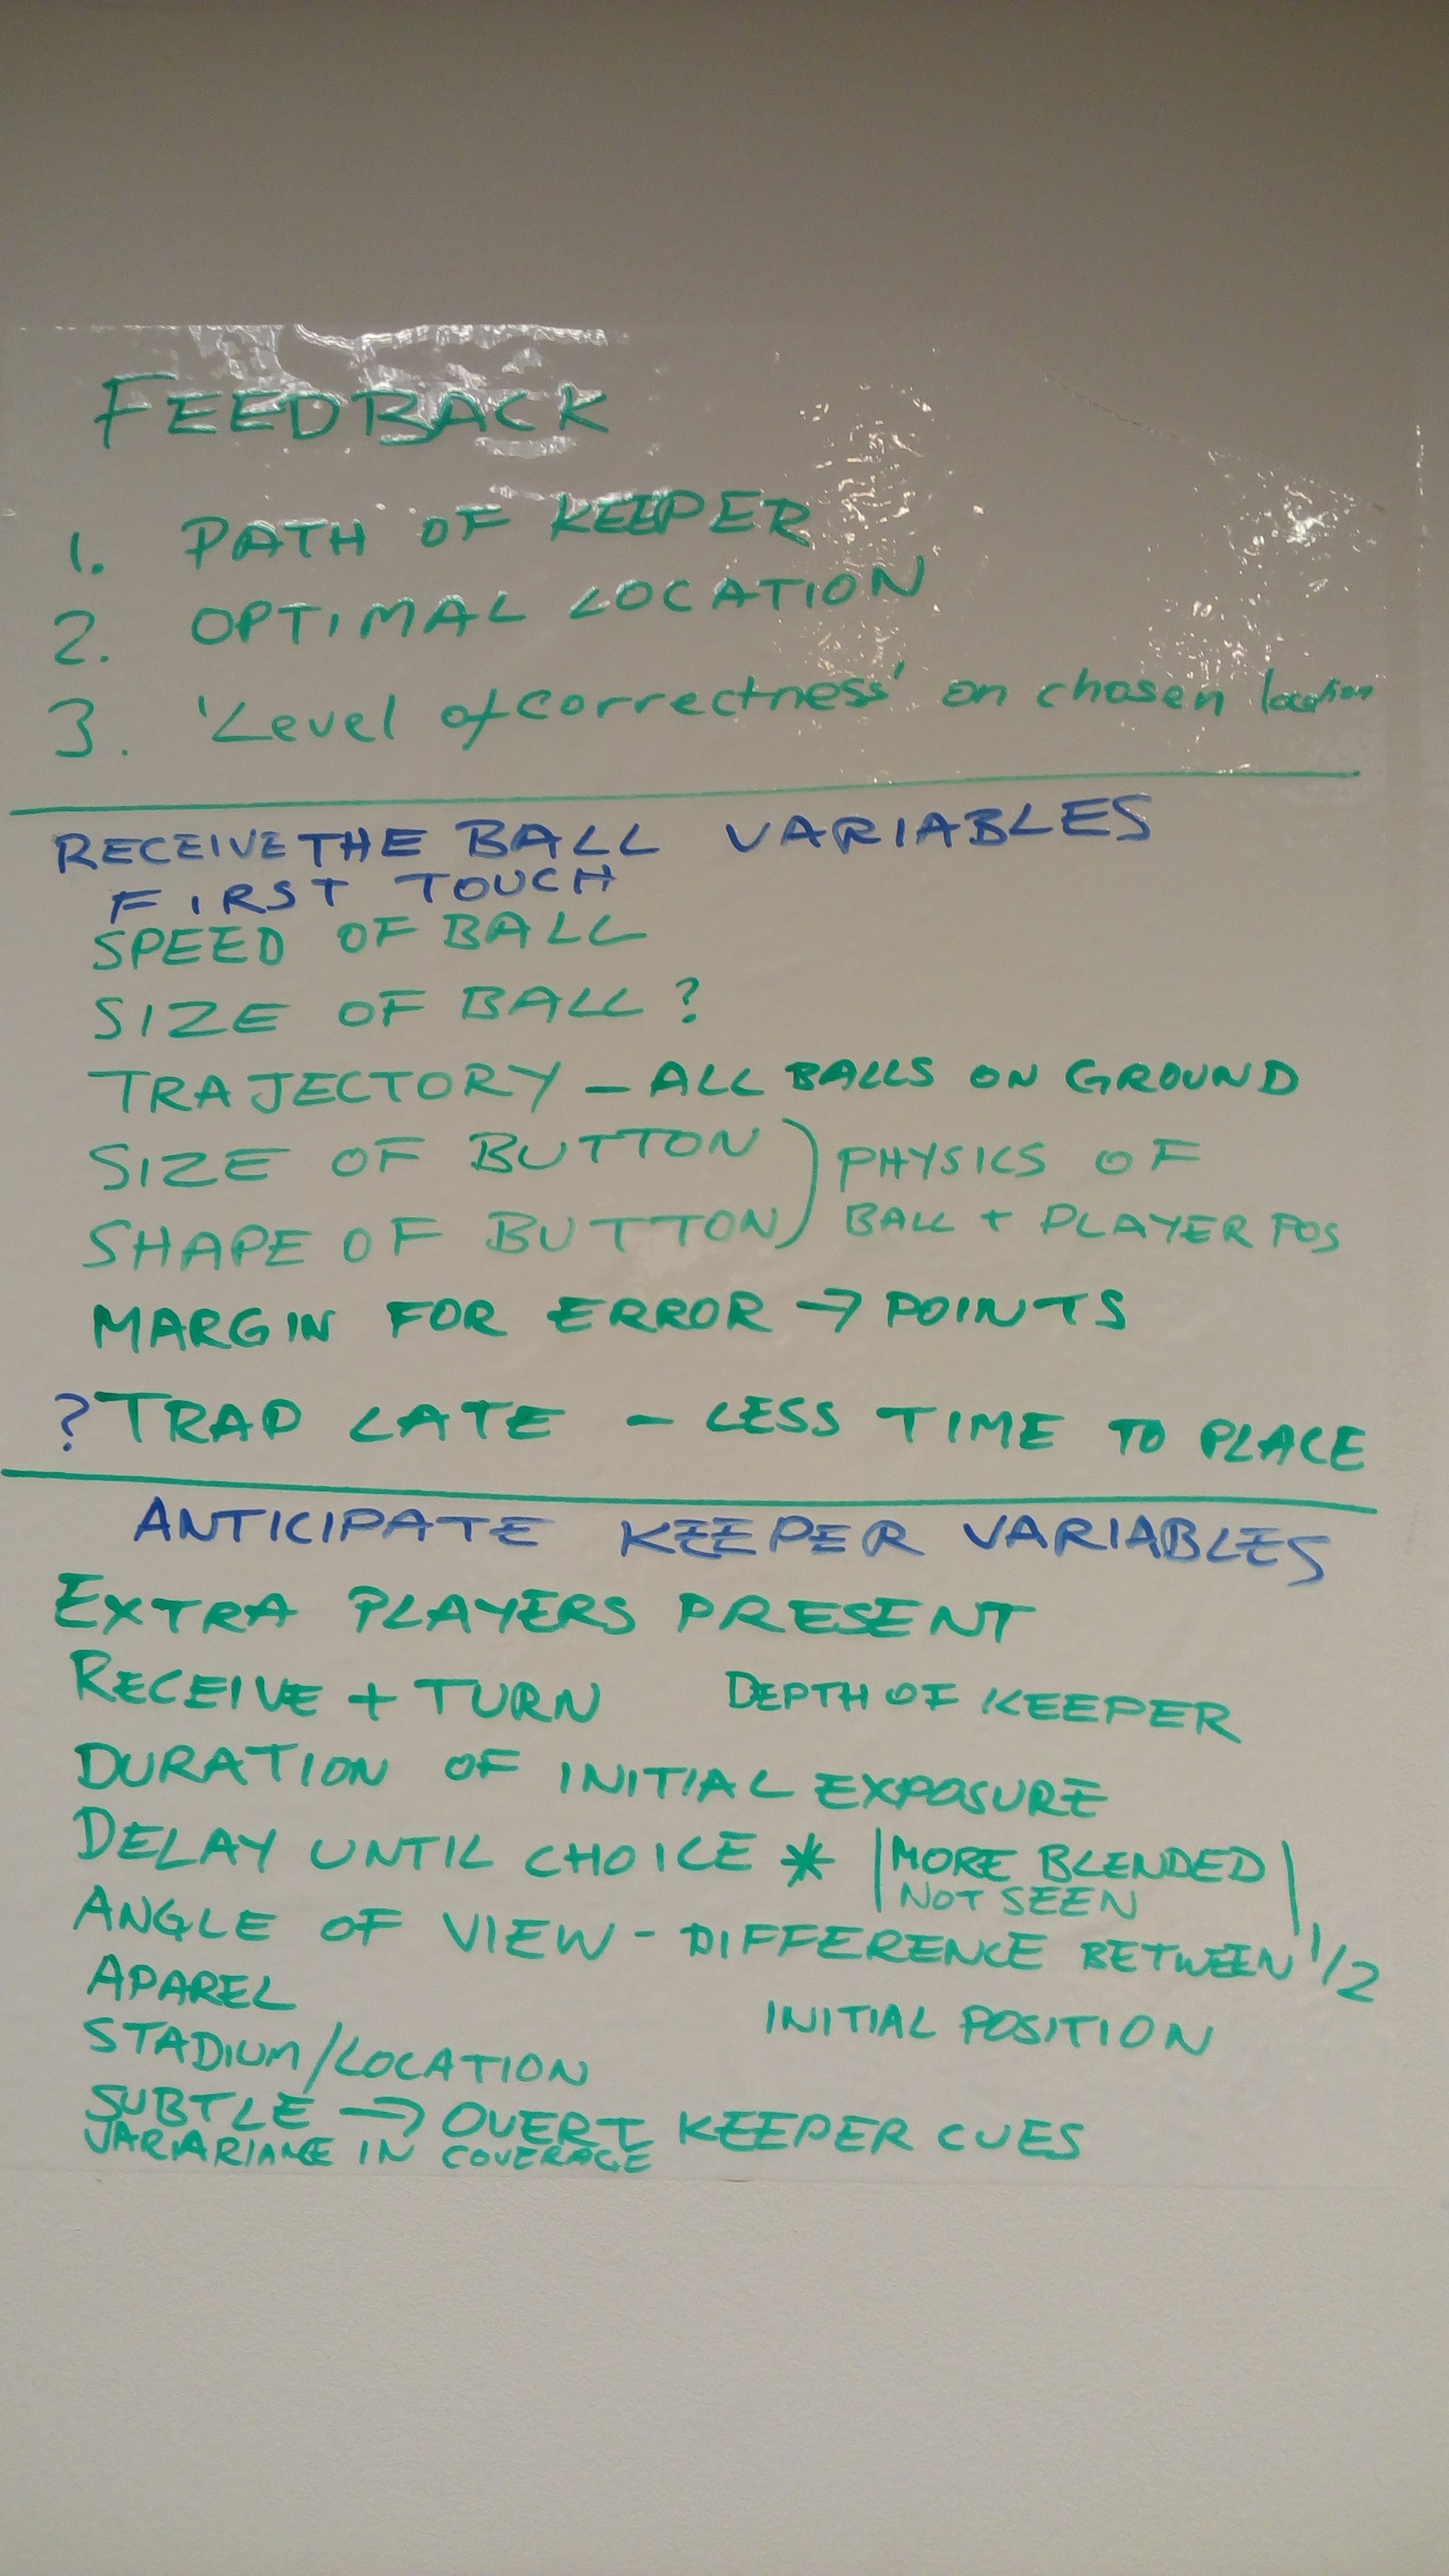 FEEDBACK
1. PATH OF KEEPER
2. OPTIMAL LOCATION
3. 'Level of correctness' on chosen location
RECEIVE THE BALL VARIABLES
FIRST TOUCH
SPEED OF BALL
SIZE OF BALL ?
TRAJECTORY - ALL BALLS ON GROUND
SIZE OF BUTTON ) PHYSICS OF
SHAPE OF BUTTON ) BALL + PLAYER POS
MARGIN FOR ERROR → POINTS
? TRAP LATE - LESS TIME TO PLACE
ANTICIPATE KEEPER VARIABLES
EXTRA PLAYERS PRESENT
RECEIVE + TURN DEPTH OF KEEPER
DURATION OF INITIAL EXPOSURE
DELAY UNTIL CHOICE * | MORE BLENDED |
NOT SEEN
ANGLE OF VIEW - DIFFERENCE BETWEEN 1/2
APAREL
INITIAL POSITION
STADIUM/LOCATION
SUBTLE → OVERT KEEPER CUES
VARIARIANCE IN COVERAGE